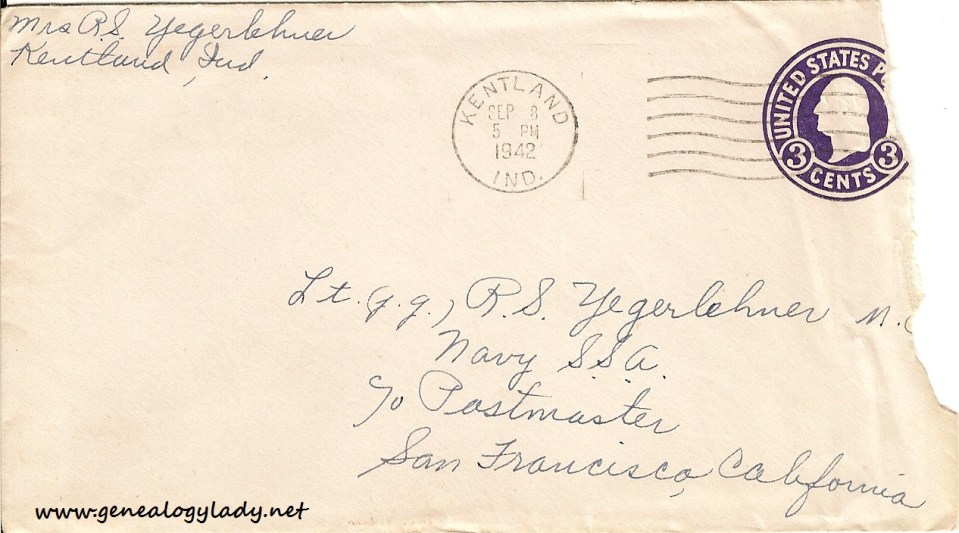 Mrs R.S. Yegerlehner
Kentland, Ind.
KENTLAND
SEP 8
5 PM
1942
IND.
UNITED STATES P
3 3
CENTS
Lt. (j.g.), R.S. Yegerlehner M.C
Navy S.S.A.
c/o Postmaster
San Francisco, California
www.genealogylady.net